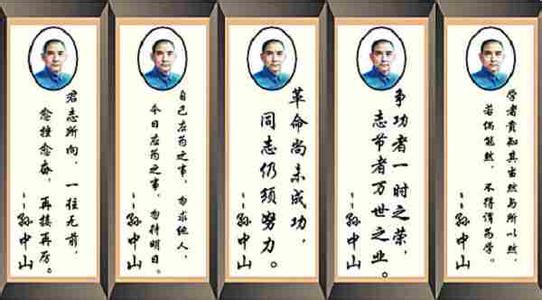 吾志所向，一往无前，
愈挫愈奋，再接再厉。
--孙中山
自己应为之事，勿求他人，
今日应为之事，勿待明日。
--孙中山
革命尚未成功，
同志仍须努力。
--孙中山
争功者一时之荣，
志节者万世之业。
--孙中山
学者贵知其当然与所以然，
若偶能然，不得谓为学。
--孙中山